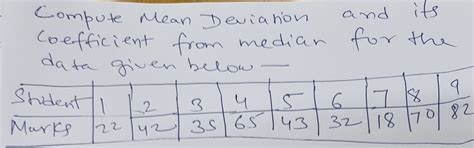 Compute Mean Deviation and its
Coefficient from median for the
data given below —
Student 1 2 3 4 5 6 7 8 9
Marks 22 42 35 65 43 32 18 70 82